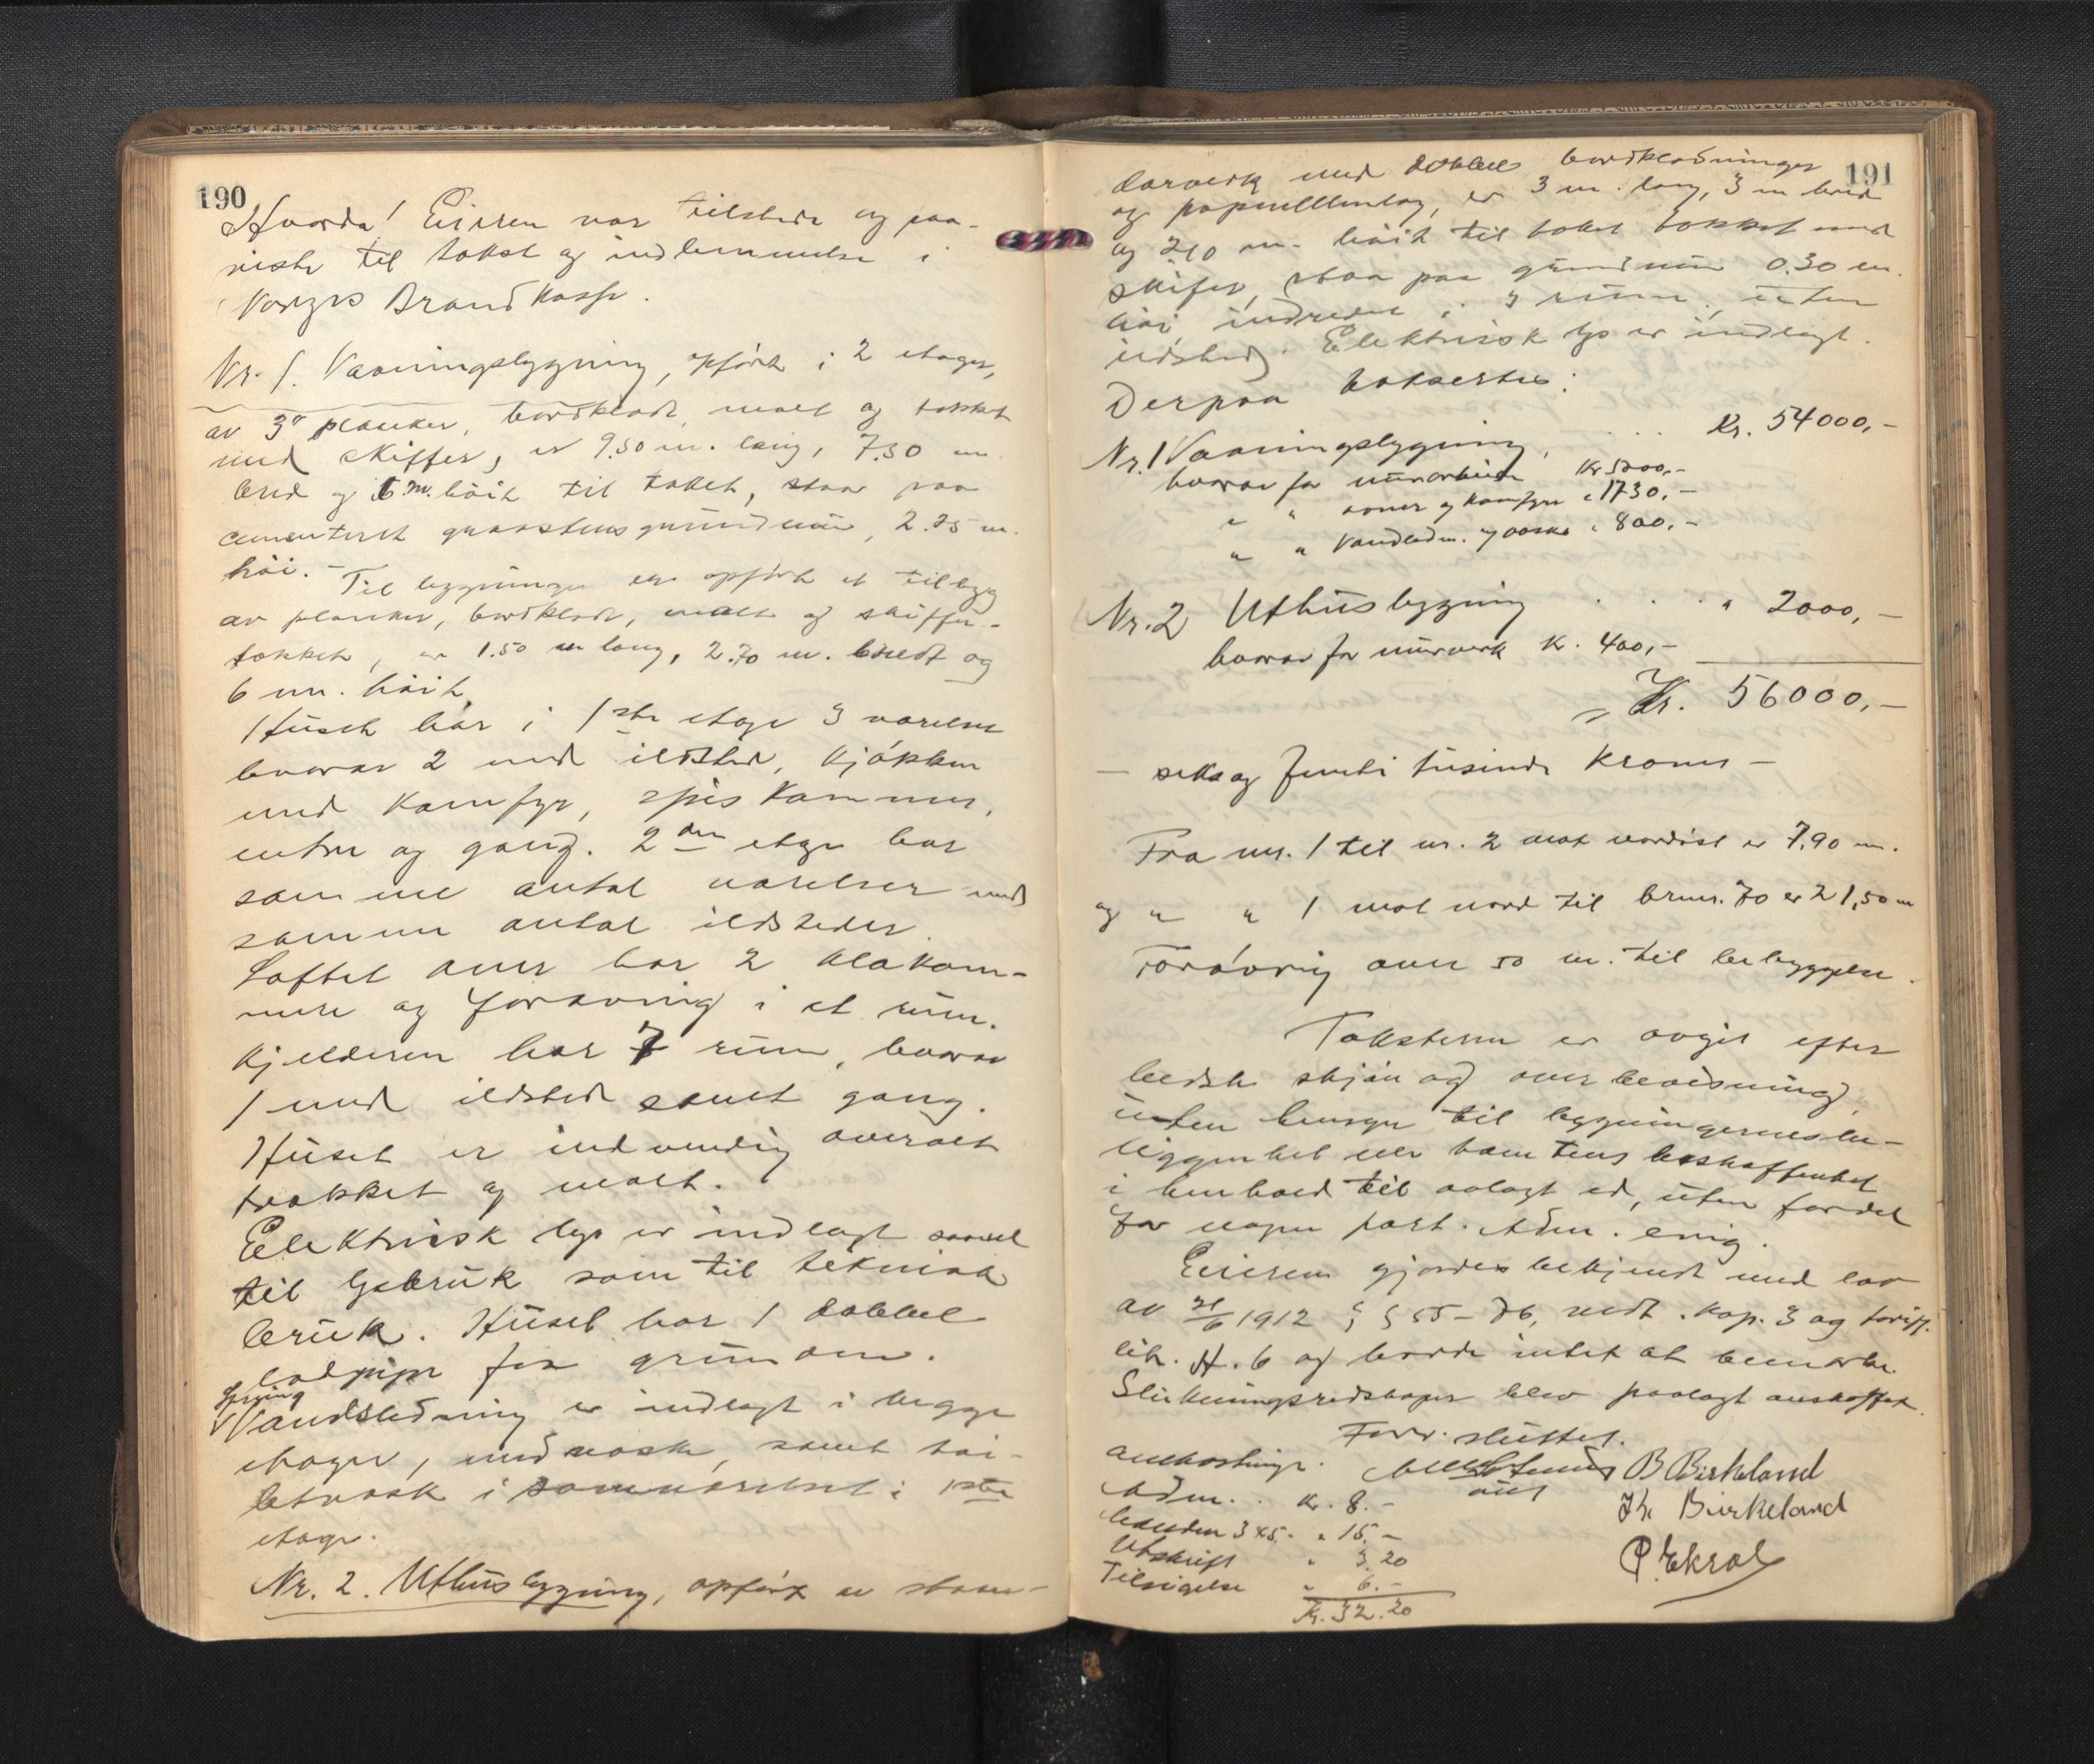 190
Hvorda! Eieren var tilstede og paa-
viste til takst og indlemmelse i
Norges Brandkasse.
Nr. 1. Vaaningsbygning, opført i 2 etager,
av 3" planker, bordklædt, malt og tækket
med skiffer, er 9.50 m. lang, 7.30 m.
bred og 6 m. høit til taket, staar paa
cementeret graastensgrundmur, 2.25 m.
høi. -
Til bygningen er opført et tilbyg
av planker, bordklædt, malt og skiffer-
tækket, er 1.50 m lang, 2.70 m. bredt og
6 m. høit.
Huset har i 1ste etage 3 værelser
hvorav 2 med ildsted, kjøkken
med komfyr, spiskammer,
entre og gang. 2den etage har
samme antal værelser med
samme antal ildsteder.
Loftet over har 2 klækam-
mere og forøvrig i et rum.
Kjelderen har 7 rum, hvorav
1 med ildsted samt gang.
Huset er indvendig overalt
trækket og malt.
Elektrisk lys er indlagt saavel
til lysbruk som til teknisk
bruk. Huset har 1 dobbel
lodpipe fra grunden.
Spring
Vandledning er indlagt i begge
etager, med vask, samt toi-
letvask i soveværelset i 1ste
etage.
Nr. 2. Uthusbygning, opført av stav-
191
darverk med dobbel bordklædninger
og papmellemlag, er 3 m. lang, 3 m bred
og 2.10 m. høit til taket tækket med
skifer, staar paa grundmur 0.30 m.
høi indredet i 3 rum, uten
ildsted. Elektrisk lys er indlagt.
Derpaa taksertes:
Nr. 1 Vaaningsbygning, . . . Kr. 54000,-
hvorav for murarbeide Kr 5200,-
" " ovner og komfyr " 1730,-
" " Vandledn. og vaske " 800,-
Nr. 2 Uthusbygning . . . " 2000,-
hvorav for murverk K. 400,-
= Kr. 56000,-
- seks og femti tusinde Kroner -
Fra nr. 1 til nr. 2 mot nordøst er 7,90 m.
og " " 1 mot nord til brnr. 70 er 21,50 m
Forøvrig over 50 m. til bebyggelse.
Taksterne er avgit efter
bedste skjøn og overbevisning,
uten hensyn til bygningernes be-
liggenhet eller tomtens beskaffenhet
i henhold til avlagt ed, uten fordel
for nogen part. Adm. enig.
Eieren gjordes bekjendt med lov
av 21/6 1912 § § 55 - 76, vedt. kap. 3 og tariff.
lit. H. 6 og havde intet at bemerke.
Slukningsredskaper blev paalagt anskaffet.
Forr. sluttet.
Omkostninger.
Adm. . Kr. 8.-
Mænden 3 x 5.- " 15.-
Utskrift " 3.20
Tilsigelse " 6.-
Kr. 32.20
B Birkeland
Kr Birkeland
P. Ekroll